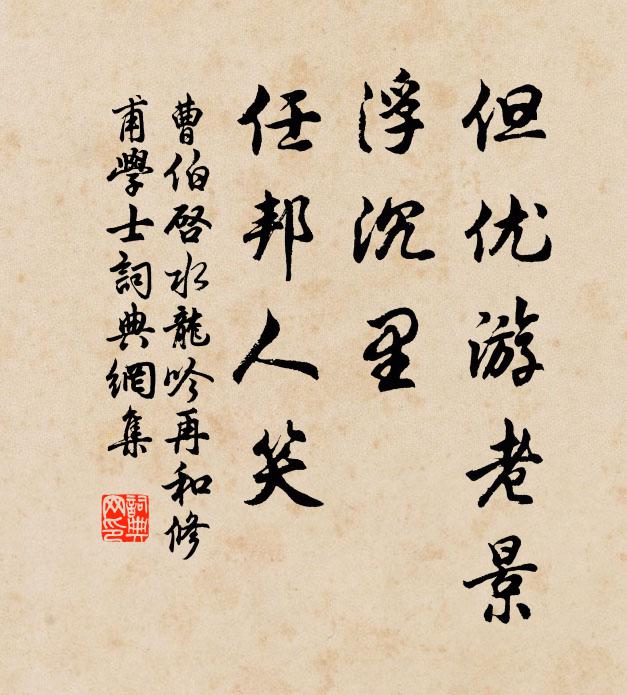 但优游老景
浮沉里
任邦人笑
曹伯啓水龍吟再和修
甫學士詞典網集
詞典网印